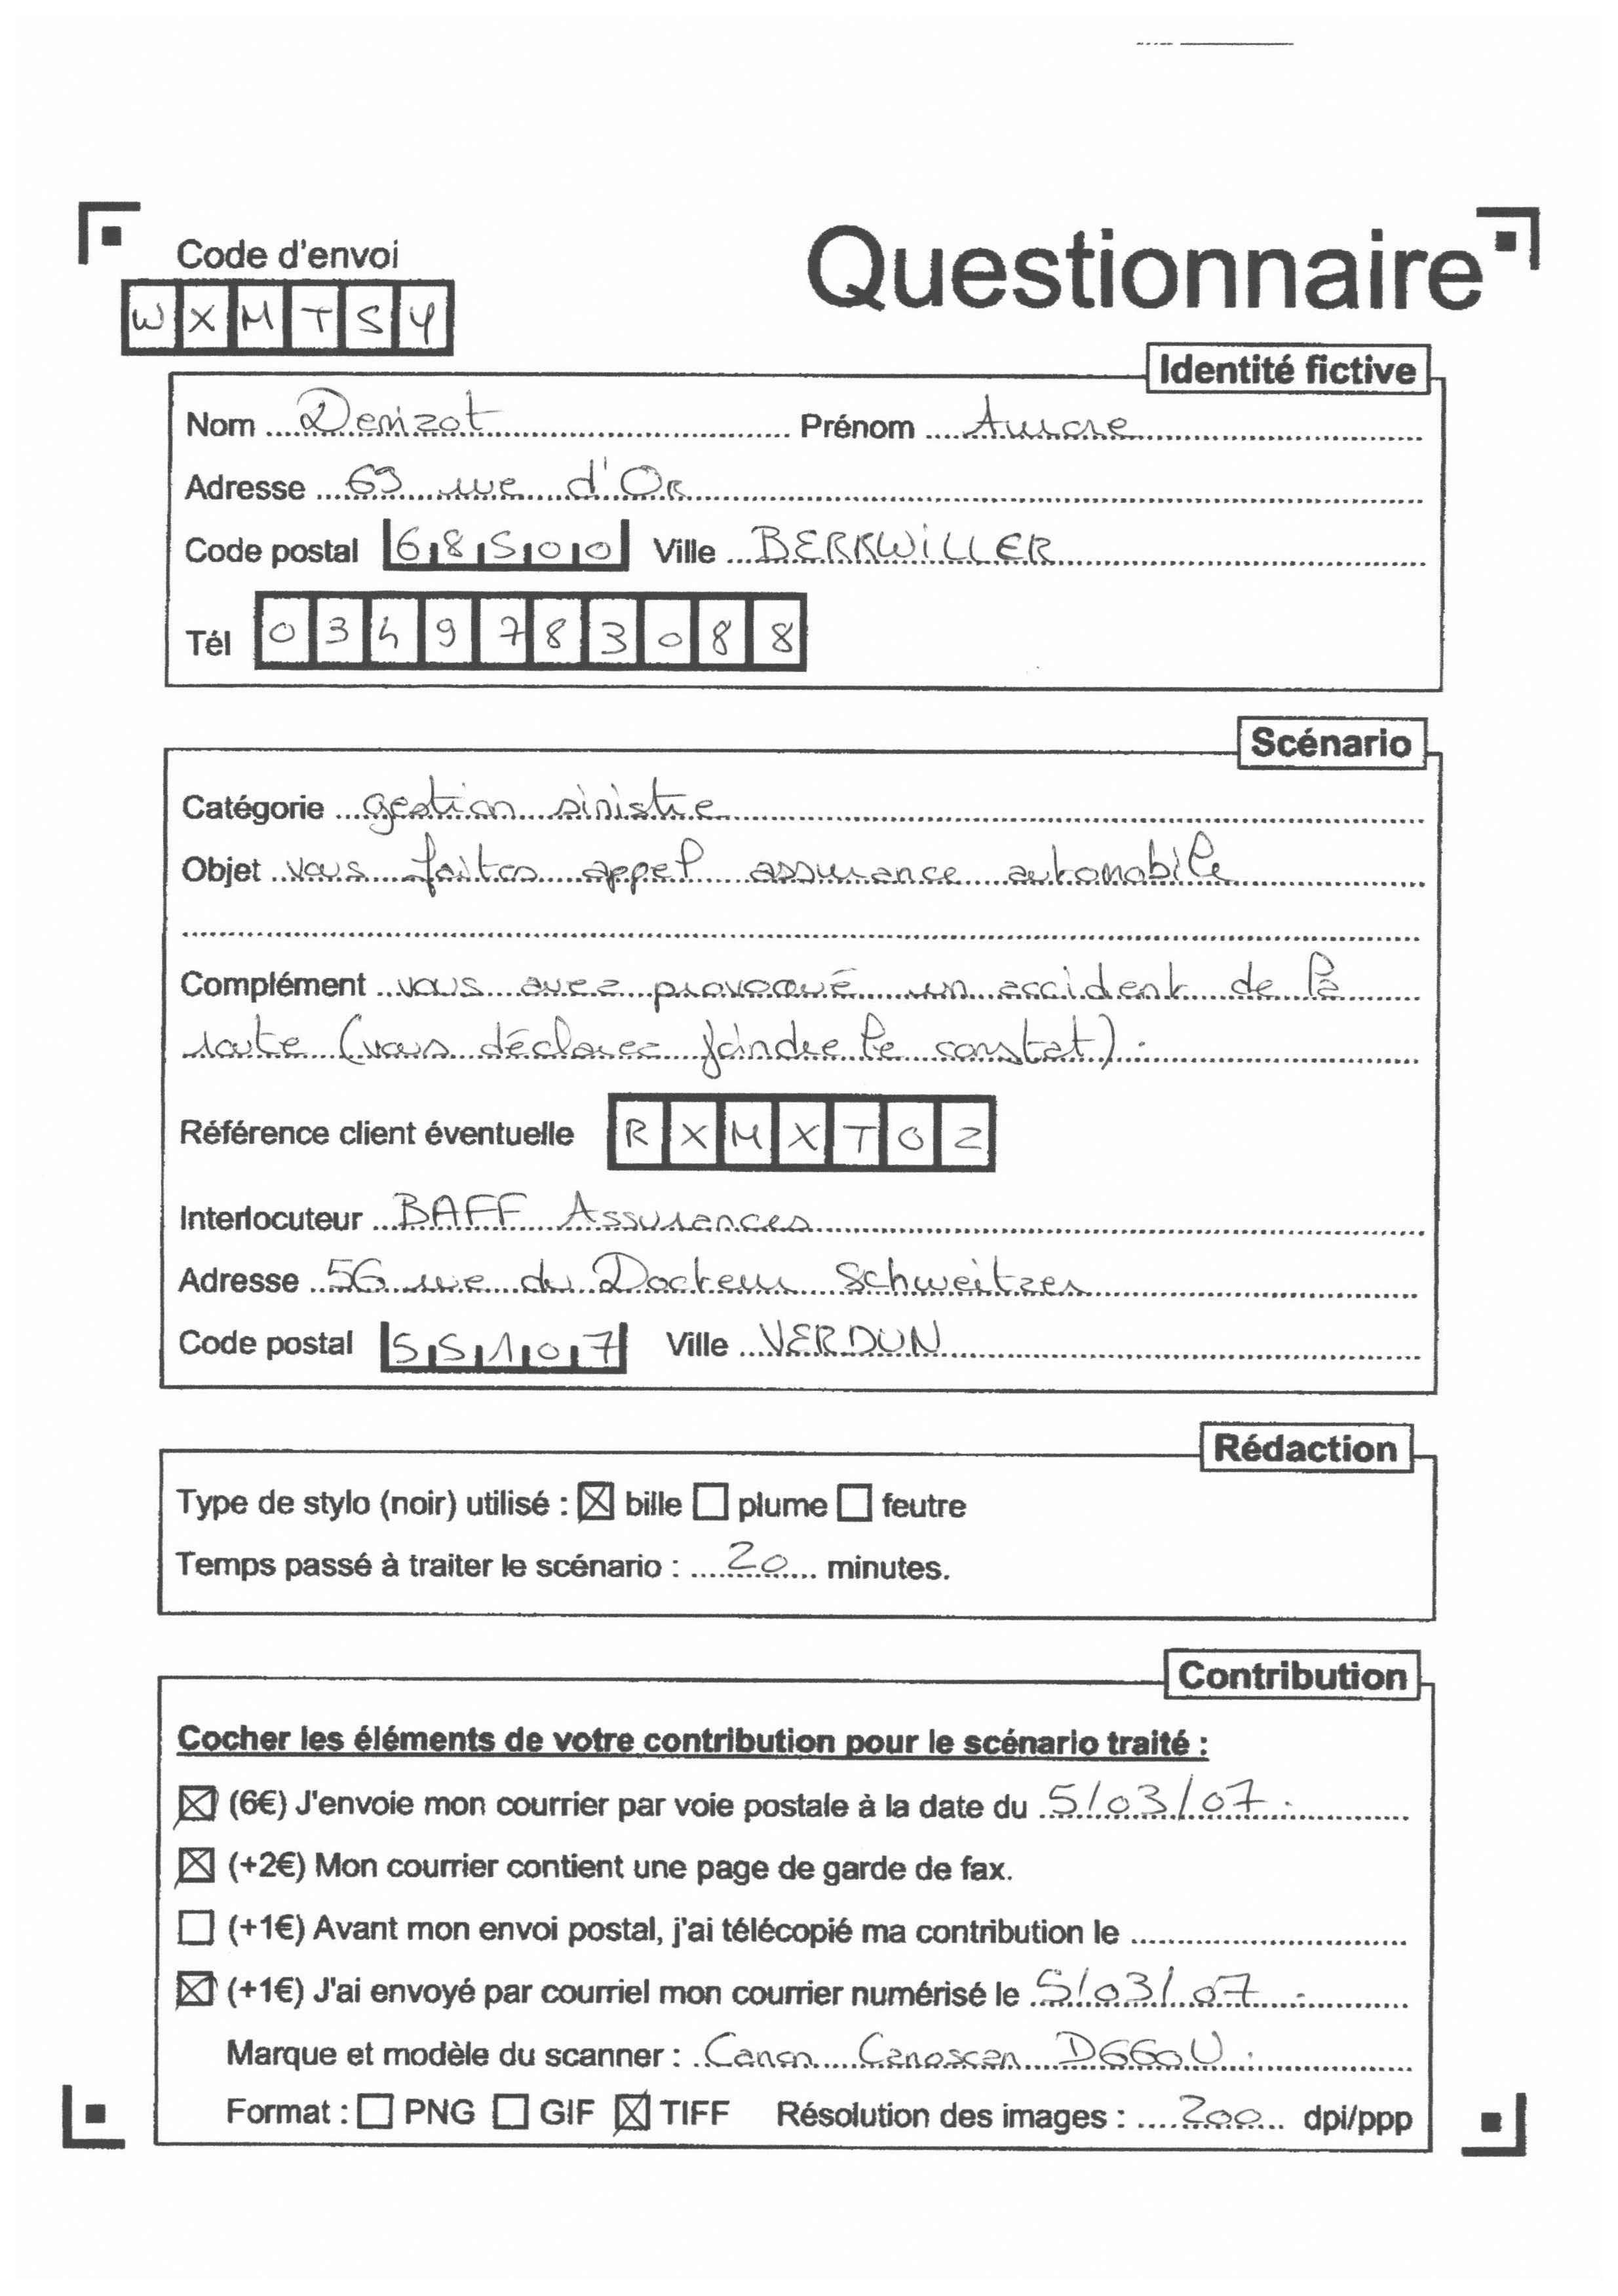 Code d'envoi
Questionnaire
W X M T S Y
Identité fictive
Nom Denizot Prénom
Adresse 69 rue d'Or
Code postal 68500 Ville BERRWILLER
Tél 0349783088
Scénario
Catégorie gestion sinistre
Objet vous faites appel assurance automobile
Complément vous avez provoqué un accident de la
route (vous déclarez joindre le constat).
Référence client éventuelle RXMXT02
Interlocuteur BAFF Assurances
Adresse 56 rue du Docteur Schweitzer
Code postal 55107 Ville VERDUN
Rédaction
Type de stylo (noir) utilisé : ☒ bille ☐ plume ☐ feutre
Temps passé à traiter le scénario : 20 minutes.
Contribution
Cocher les éléments de votre contribution pour le scénario traité :
☒ (6€) J'envoie mon courrier par voie postale à la date du 5/03/07.
☒ (+2€) Mon courrier contient une page de garde de fax.
☐ (+1€) Avant mon envoi postal, j'ai télécopié ma contribution le
☒ (+1€) J'ai envoyé par courriel mon courrier numérisé le 5/03/07.
Marque et modèle du scanner : Canon Canoscan D660U.
Format : ☐ PNG ☐ GIF ☒ TIFF Résolution des images : 200 dpi/ppp